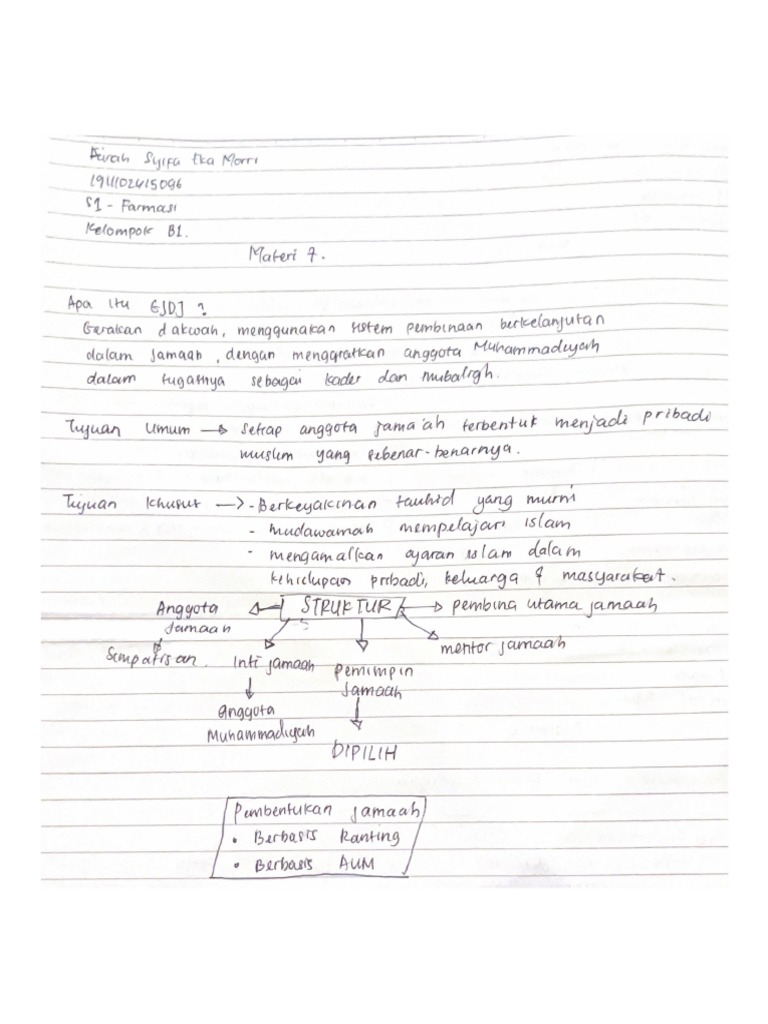 Syifa Eka Morri
1911102415096
S1 - Farmasi
Kelompok B1.
Materi 7.
Apa itu GJDJ ?
Gerakan dakwah, menggunakan sistem pembinaan berkelanjutan
dalam jamaah, dengan menggiatkan anggota Muhammadiyah
dalam tugasnya sebagai kader dan mubaligh.
Tujuan Umum → setiap anggota jama'ah terbentuk menjadi pribadi
muslim yang sebenar-benarnya.
Tujuan khusus → - Berkeyakinan tauhid yang murni
- mudawamah mempelajari islam
- mengamalkan ajaran islam dalam
kehidupan pribadi, keluarga & masyarakat.
Anggota ← STRUKTUR → pembina utama jamaah
jamaah
mentor jamaah
Simpatisan. Inti jamaah Pemimpin
jamaah
Anggota
Muhammadiyah
DIPILIH
Pembentukan jamaah
• Berbasis Ranting
• Berbasis AUM